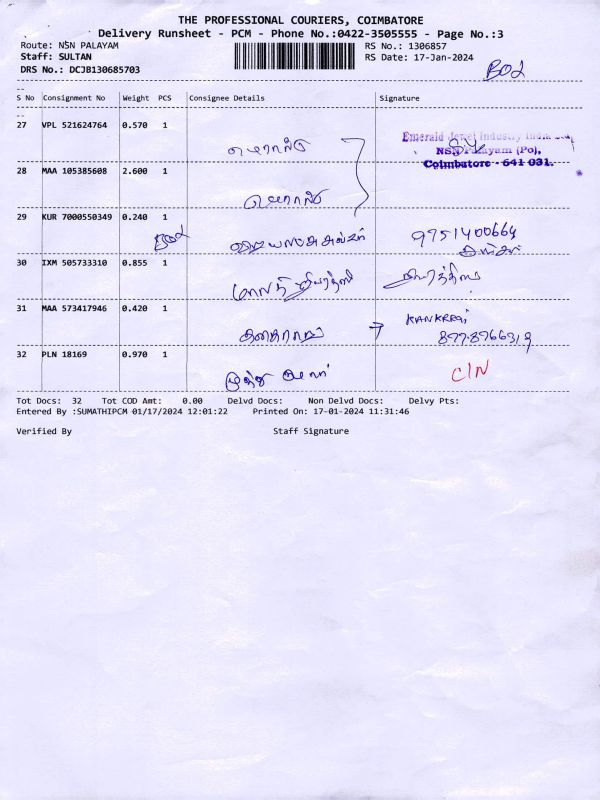 THE PROFESSIONAL COURIERS, COIMBATORE
Delivery Runsheet - PCM - Phone No.:0422-3505555 - Page No.:3
Route: NSN PALAYAM
RS No.: 1306857
Staff: SULTAN
RS Date: 17-Jan-2024
DRS No.: DCJB130685703
S No Consignment No Weight PCS Consignee Details Signature
27 VPL 521624764 0.570 1
Emerald Jewel Industry India
NSN Palayam (Po),
Coimbatore - 641 031.
28 MAA 105385608 2.600 1
29 KUR 7000550349 0.240 1
9751400664
30 IXM 505733310 0.855 1
31 MAA 573417946 0.420 1
KANKRAJ
32 PLN 18169 0.970 1
முத்து குமார்
C/N
Tot Docs: 32 Tot COD Amt: 0.00 Delvd Docs: Non Delvd Docs: Delvy Pts:
Entered By :SUMATHIPCM 01/17/2024 12:01:22 Printed On: 17-01-2024 11:31:46
Verified By Staff Signature